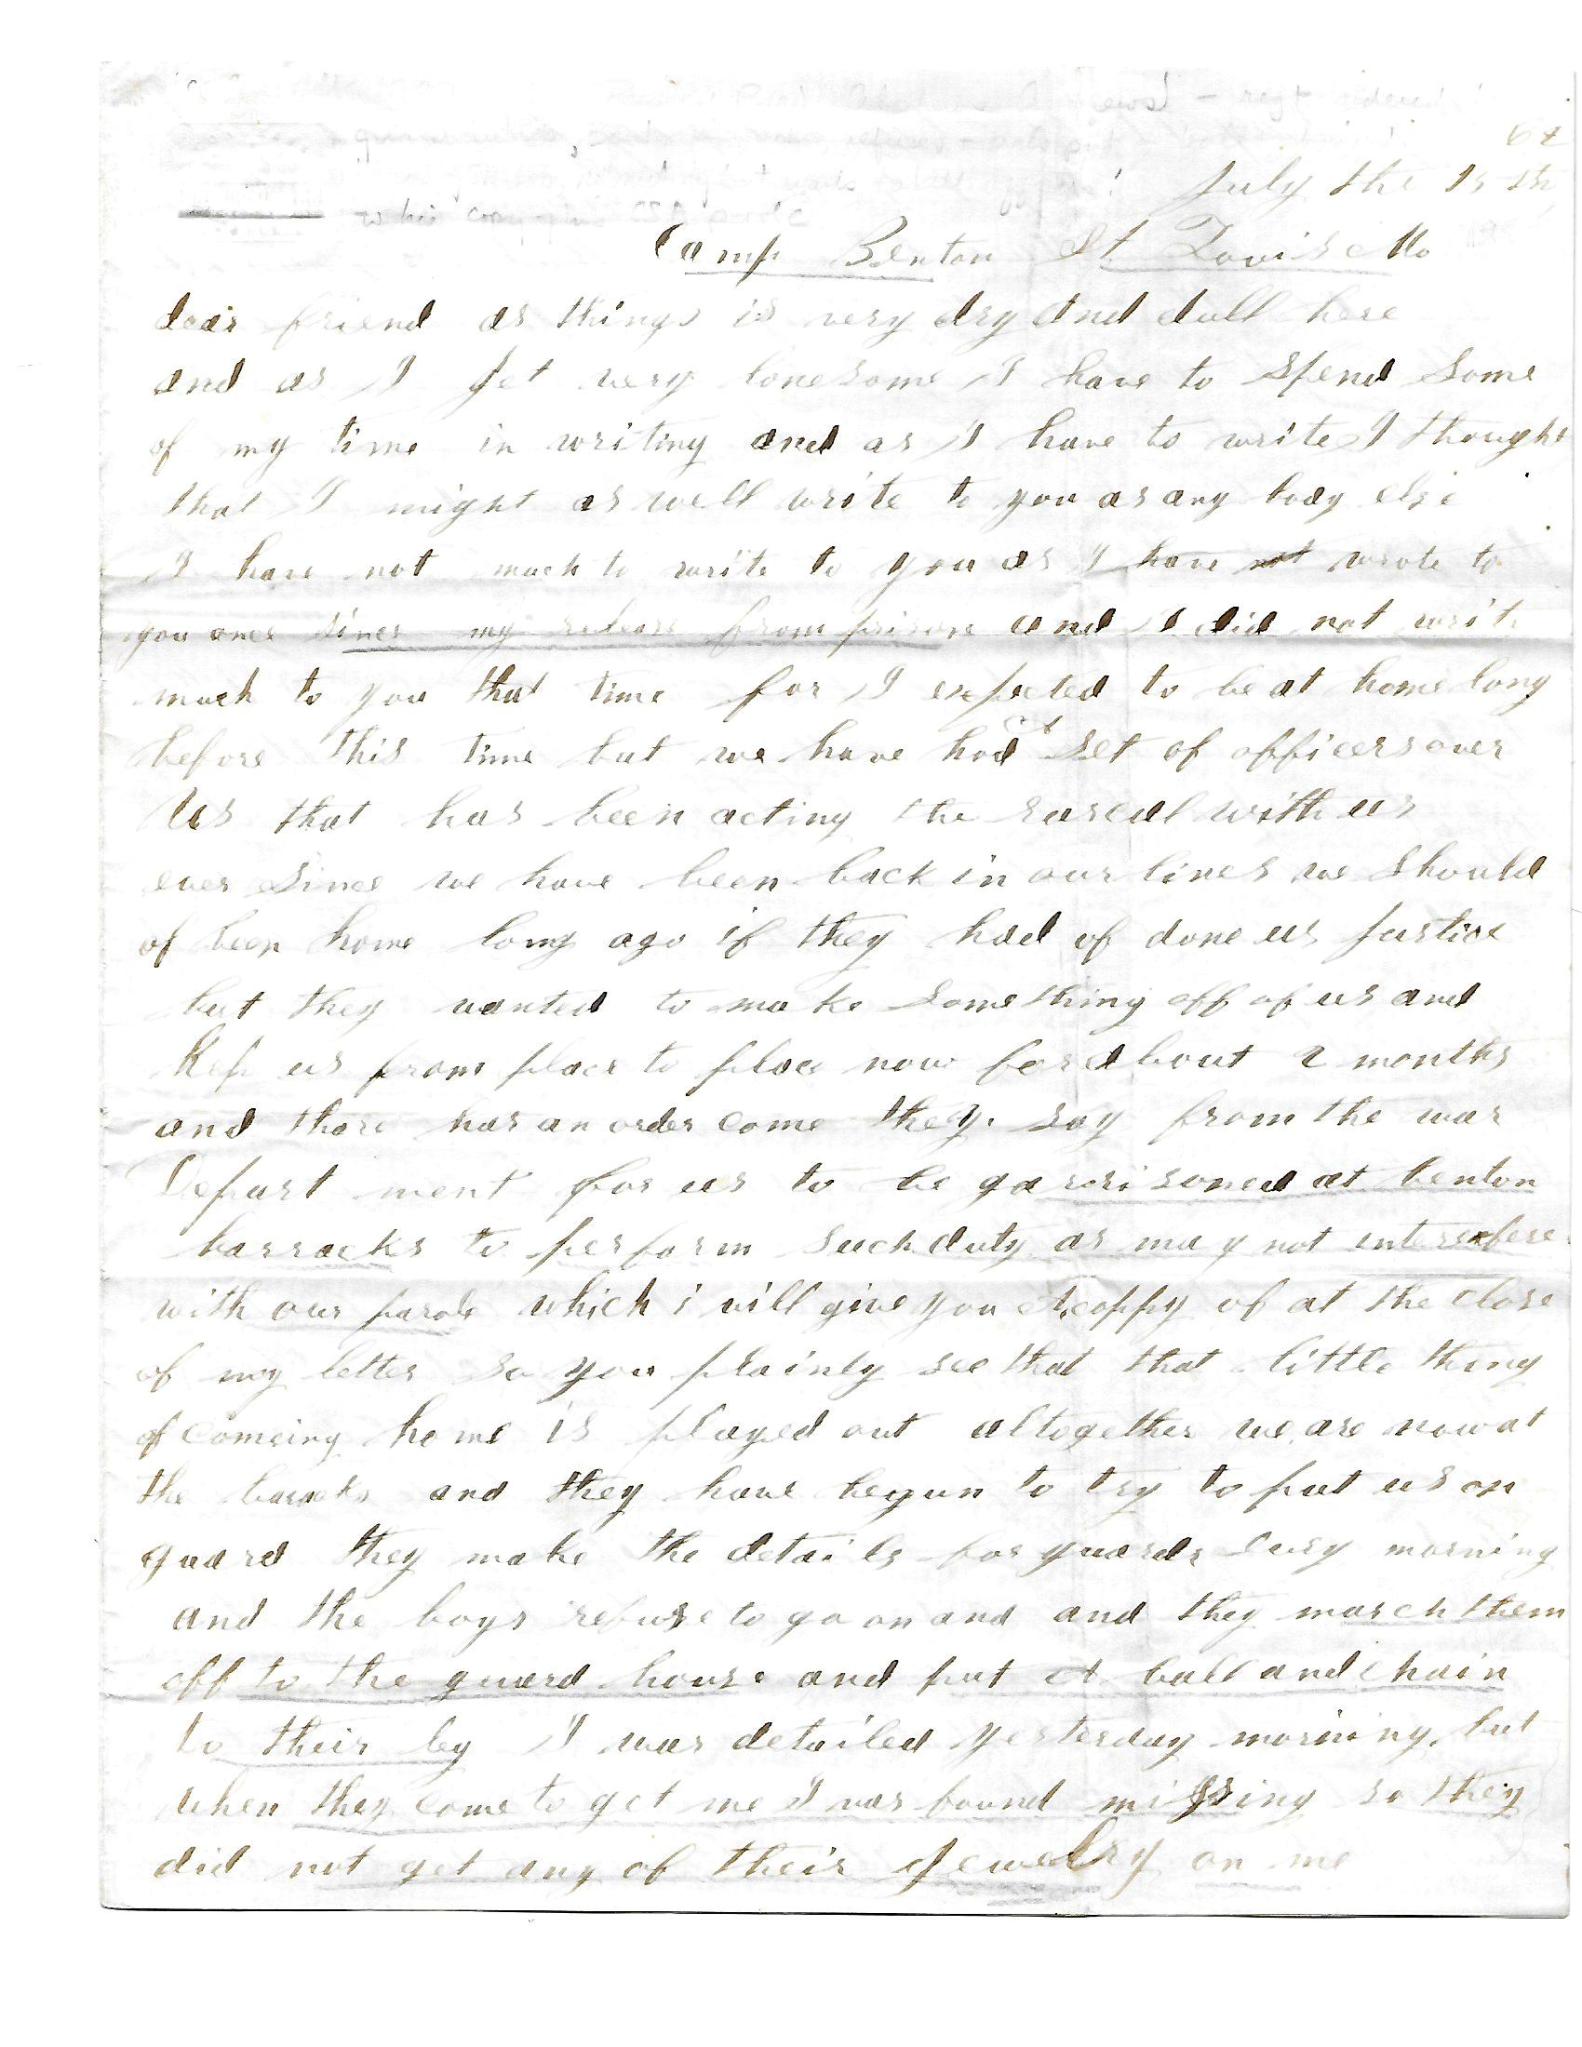 62
July the 15 th
Camp Benton St Louise Mo
dear friend as things is very dry and dull here
and as I get very lonesome I have to spend some
of my time in writing and as I have to write I thought
that I might as well write to you as any body else
I have not much to write to you as I have not wrote to
you once since my release from prison and I did not write
much to you that time for I expected to be at home long
before this time but we have had a set of officers over
us that has been acting the rascal with us
ever since we have been back in our lines we should
of been home long ago if they had of done us justice
but they wanted to make something off of us and
Kep us from place to place now for about 2 months
and there has an order come they say from the war
Depart ment for us to be garrisoned at benton
barracks to perform such duty as may not interefere
with our parole which i will give you A coppy of at the close
of my letter so you plainly see that that little thing
of comeing home is played out altogether we are now at
the baracks and they have begun to try to put us on
guard they make the details for guards evry morning
and the boys refuse to go on and and they march them
off to the guard house and put A ball and chain
to their leg I was detailed yesterday morning but
when they come to get me I was found missing so they
did not get any of their Jewelry on me